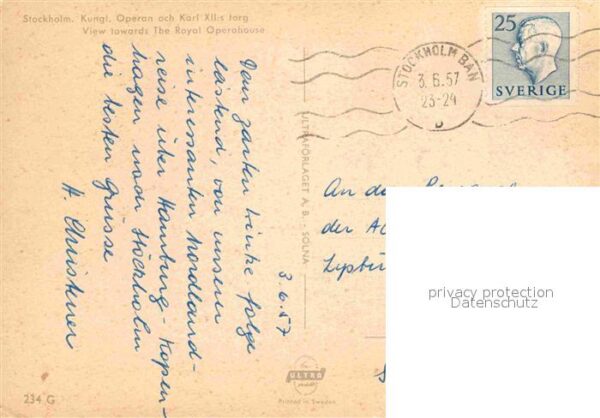 Stockholm. Kungl. Operan och Karl XII:s torg
View towards The Royal Operahouse
25
SVERIGE
STOCKHOLM BAN
3.6.57
23-24
3.6.57
Dem zarten Winke folge
leistend, von unserer
interessanten Nordland-
reise über Hamburg-Kopen-
hagen nach Stockholm
die besten Grüsse
H. Christener
ULTRAFÖRLAGET A.B. - SOLNA
An
der
privacy protection
Datenschutz
ULTRA
234 G
Printed in Sweden